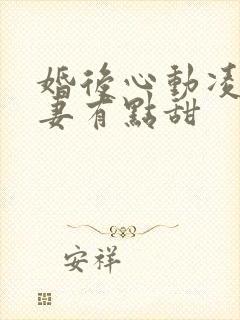 婚後心動凌
妻有點甜
安祥